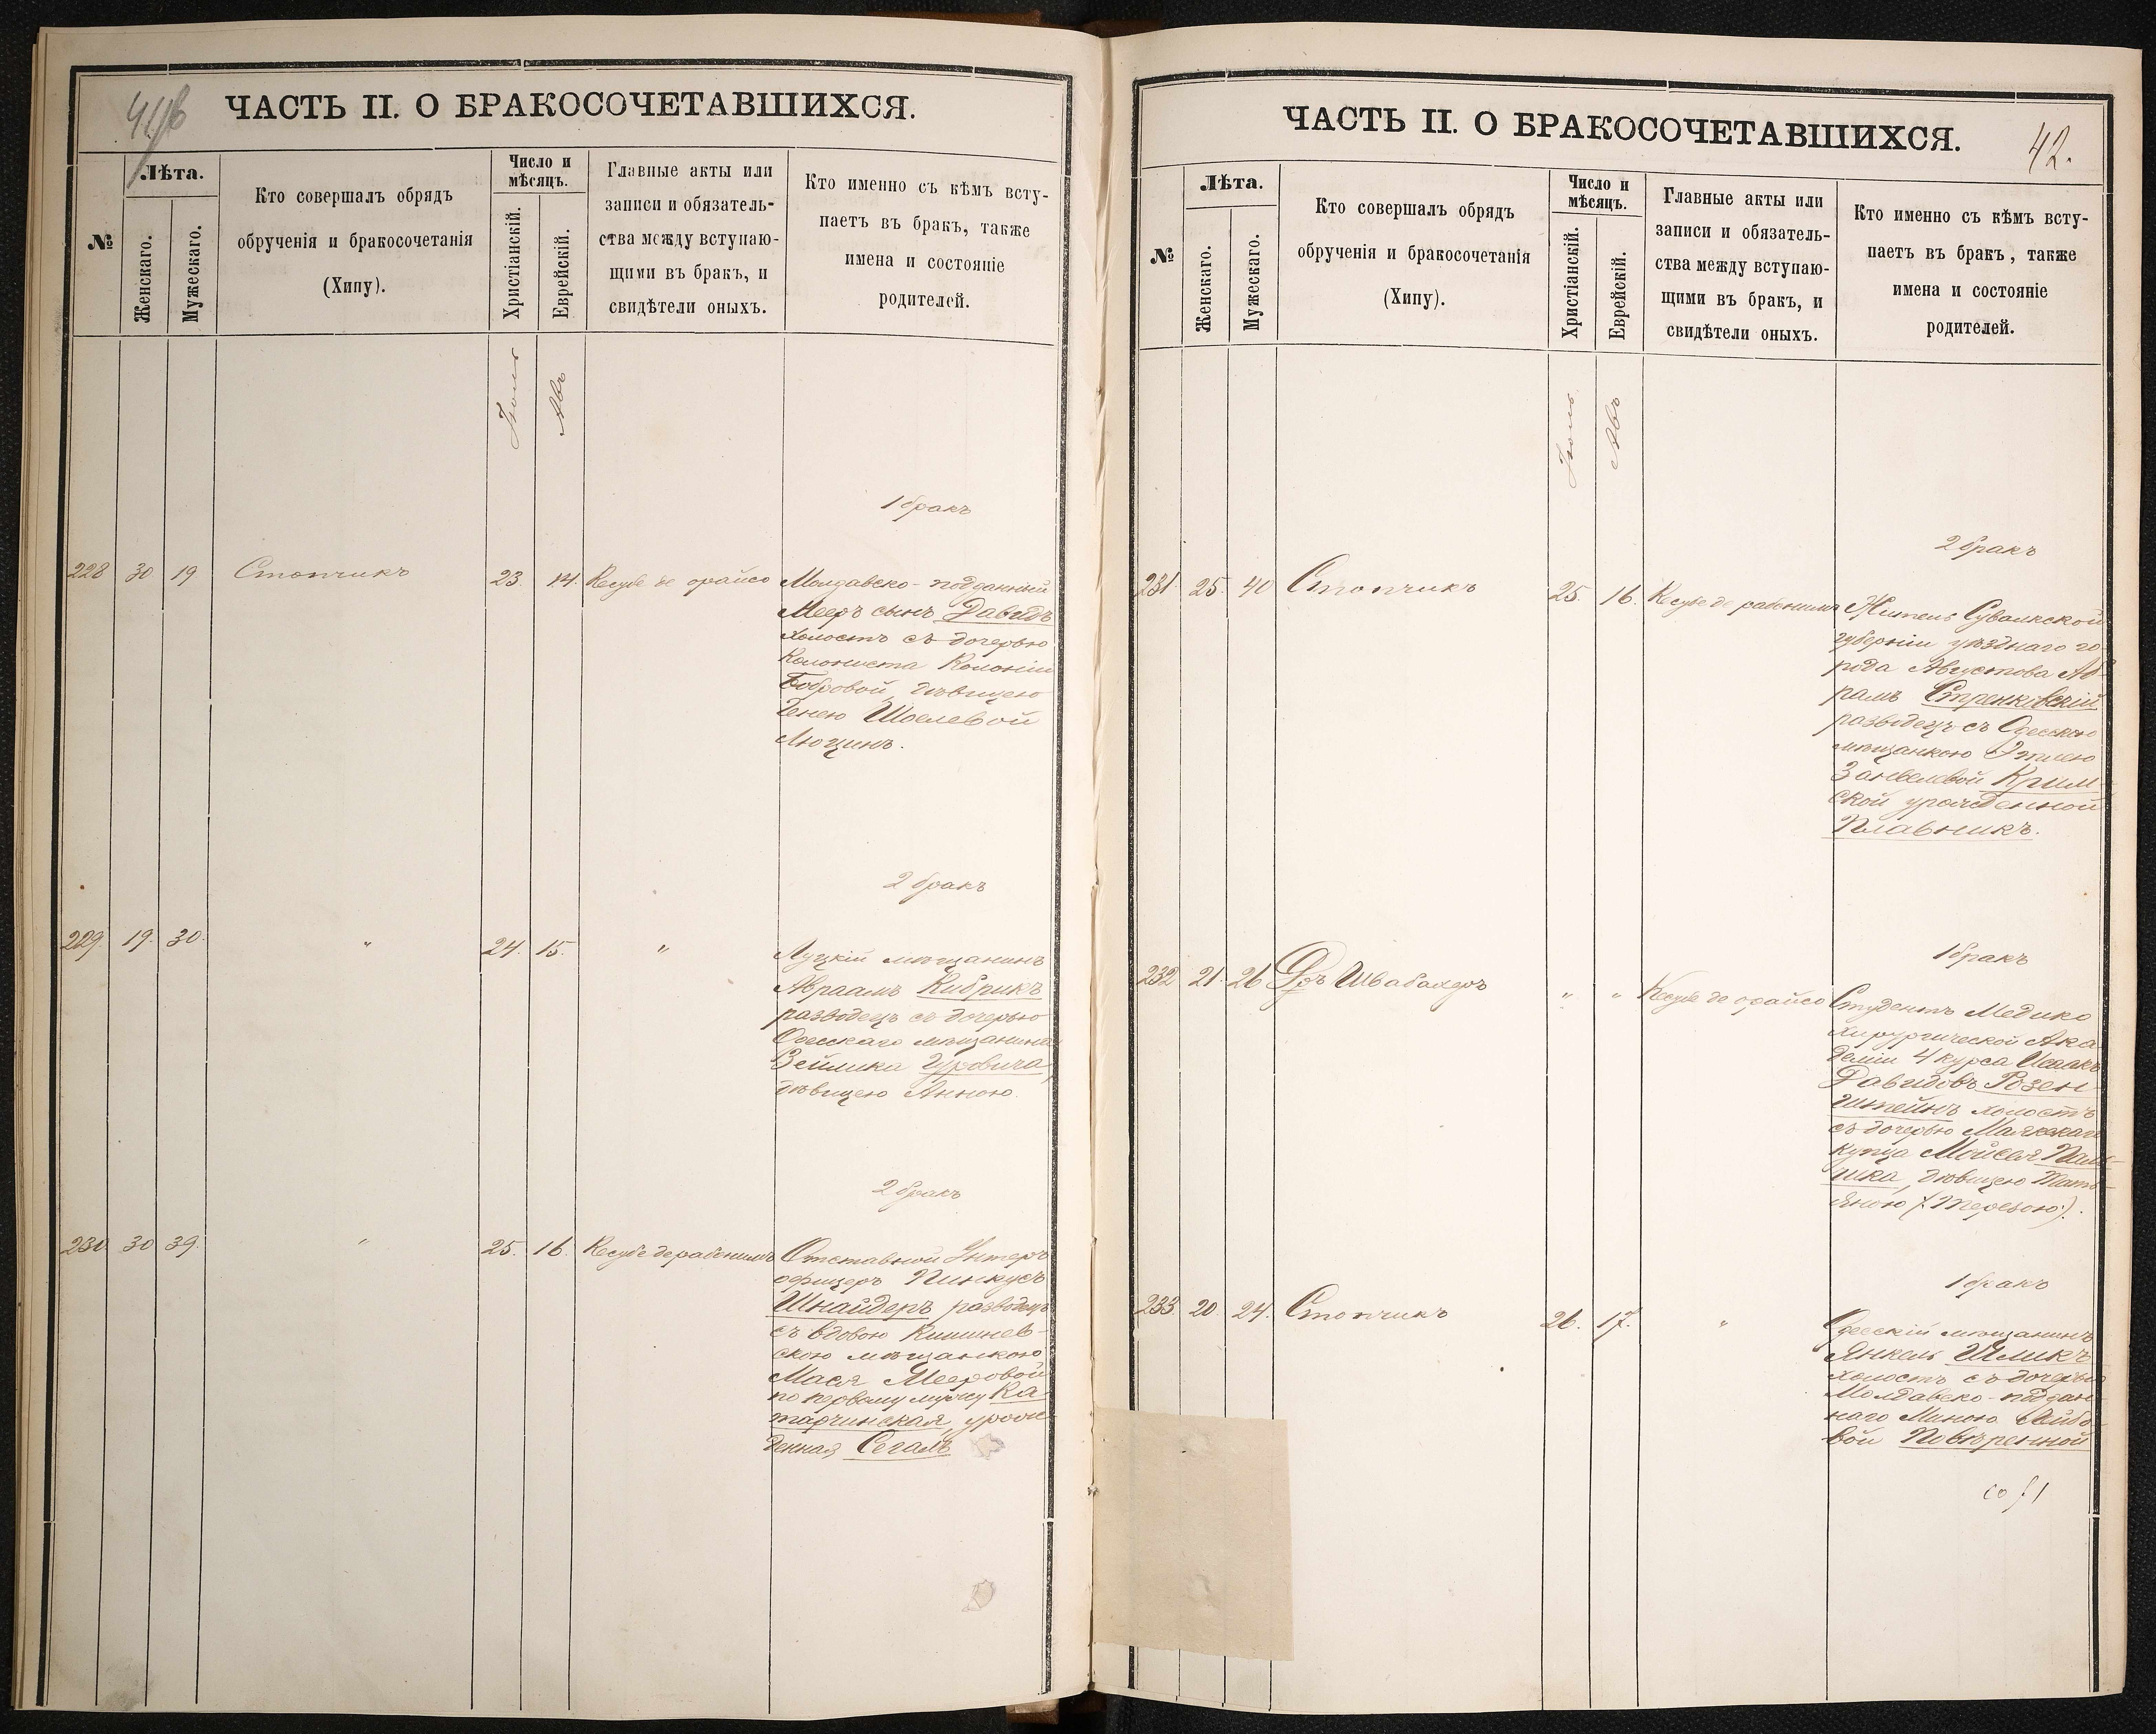 41/б
ЧАСТЬ II. О БРАКОСОЧЕТАВШИХСЯ.
№
Лѣта.
Женскаго.
Мужескаго.
Кто совершалъ обрядъ
обрученія и бракосочетанія
(Хипу).
Число и
мѣсяцъ.
Христіанскій.
Еврейскій.
Главные акты или
записи и обязатель-
ства между вступаю-
щими въ бракъ, и
свидѣтели оныхъ.
Кто именно съ кѣмъ всту-
паетъ въ бракъ, также
имена и состояніе
родителей.
Іюль
Авъ
1 бракъ
228 30 19 Стопчикъ 23. 14. Кесубе де орайсо
Молдавско-подданный
Мееръ сынъ Давидъ
холостъ съ дочерью
Колониста Колоніи
Бобровой, дѣвицею
Генею Шоелевой
Люцинъ.
2 бракъ
229. 19. 30. " 24. 15. "
Луцкій мѣщанинъ
Авраамъ Кибрикъ
разводецъ съ дочерью
Одесскаго мѣщанина
Зейлика Гуровича,
дѣвицею Анною.
2 бракъ
230 30 39. " 25. 16. Кесубе де рабонимъ
Отставной Унтеръ
офицеръ Пинкусъ
Шнайдеръ разводецъ
съ вдовою Кишинев-
скою мѣщанкою
Мася Мееровой
по первому мужу Ка-
тарчинская, урож-
денная Сегалъ
42.
ЧАСТЬ II. О БРАКОСОЧЕТАВШИХСЯ.
№
Лѣта.
Женскаго.
Мужескаго.
Кто совершалъ обрядъ
обрученія и бракосочетанія
(Хипу).
Число и
мѣсяцъ.
Христіанскій.
Еврейскій.
Главные акты или
записи и обязатель-
ства между вступаю-
щими въ бракъ, и
свидѣтели оныхъ.
Кто именно съ кѣмъ всту-
паетъ въ бракъ, также
имена и состояніе
родителей.
Іюль
Авъ
2 бракъ
231. 25. 40 Стопчикъ 25. 16. Кесубе де рабонимъ
Житель Сувалкской
губерніи уѣзднаго го-
рода Августова Аб-
рамъ Стренковскій
разводецъ съ Одесскою
мѣщанкою Этлею
Занвелевой Крим-
ской урожденной
Плавникъ.
1 бракъ
232 21. 26 Др Швабахеръ " " Кесубе де орайсо
Студентъ Медико
хирургической Ака
деміи 4 курса Исаакъ
Давидовъ Розен-
штейнъ холостъ
съ дочерью Маякскаго
купца Мойсея
дѣвицею Тать-
яною (:Терезою:).
1 бракъ
233 20. 24. Стопчикъ 26. 17. "
Одесскій мѣщанинъ
Янкель Шликъ
холостъ съ дочерью
Молдавско-поддан
наго Миною Лейбо-
вой Повѣренной